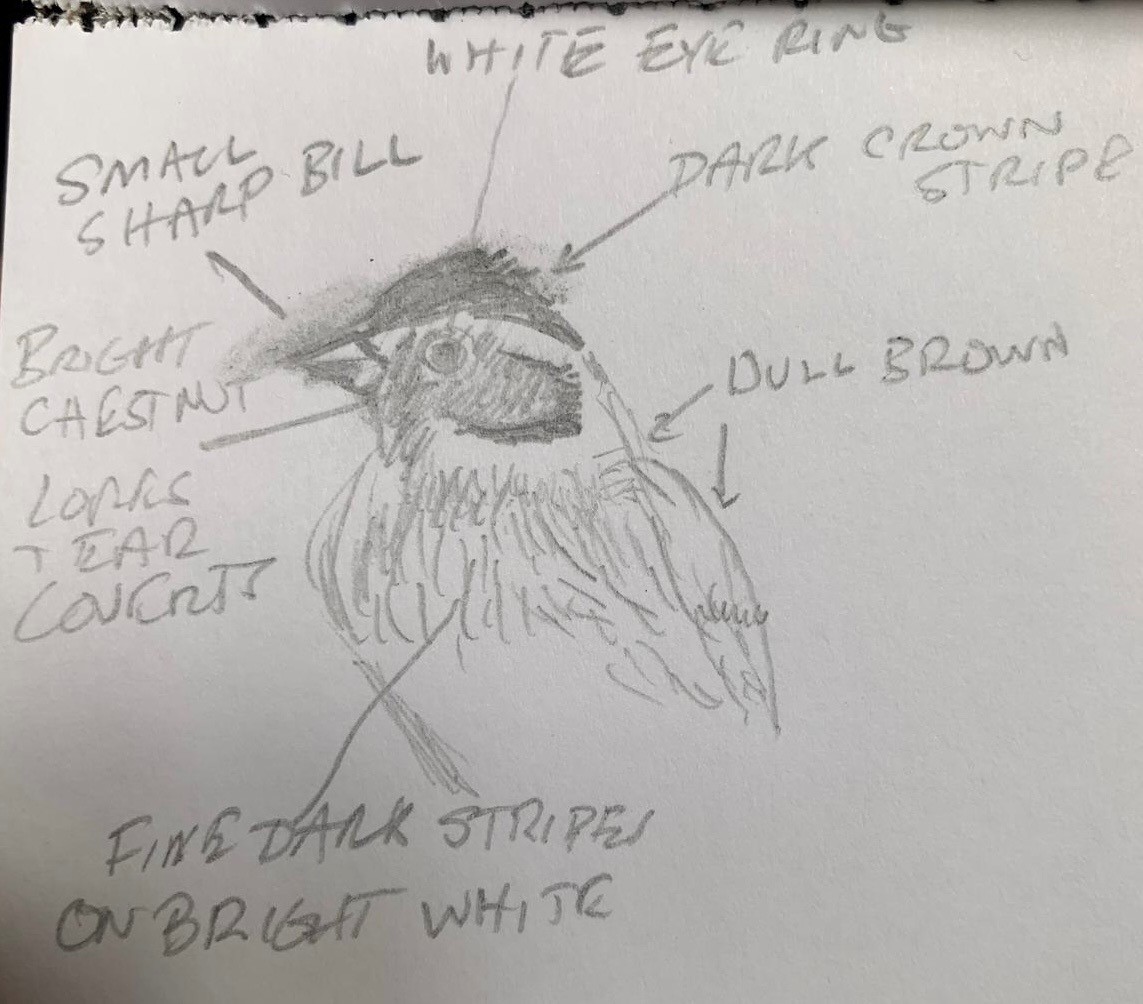 WHITE EYE RING
SMALL
SHARP BILL
DARK CROWN
STRIPE
BRIGHT
CHESTNUT
LORES
+ EAR
COVERTS
DULL BROWN
FINE DARK STRIPES
ON BRIGHT WHITE